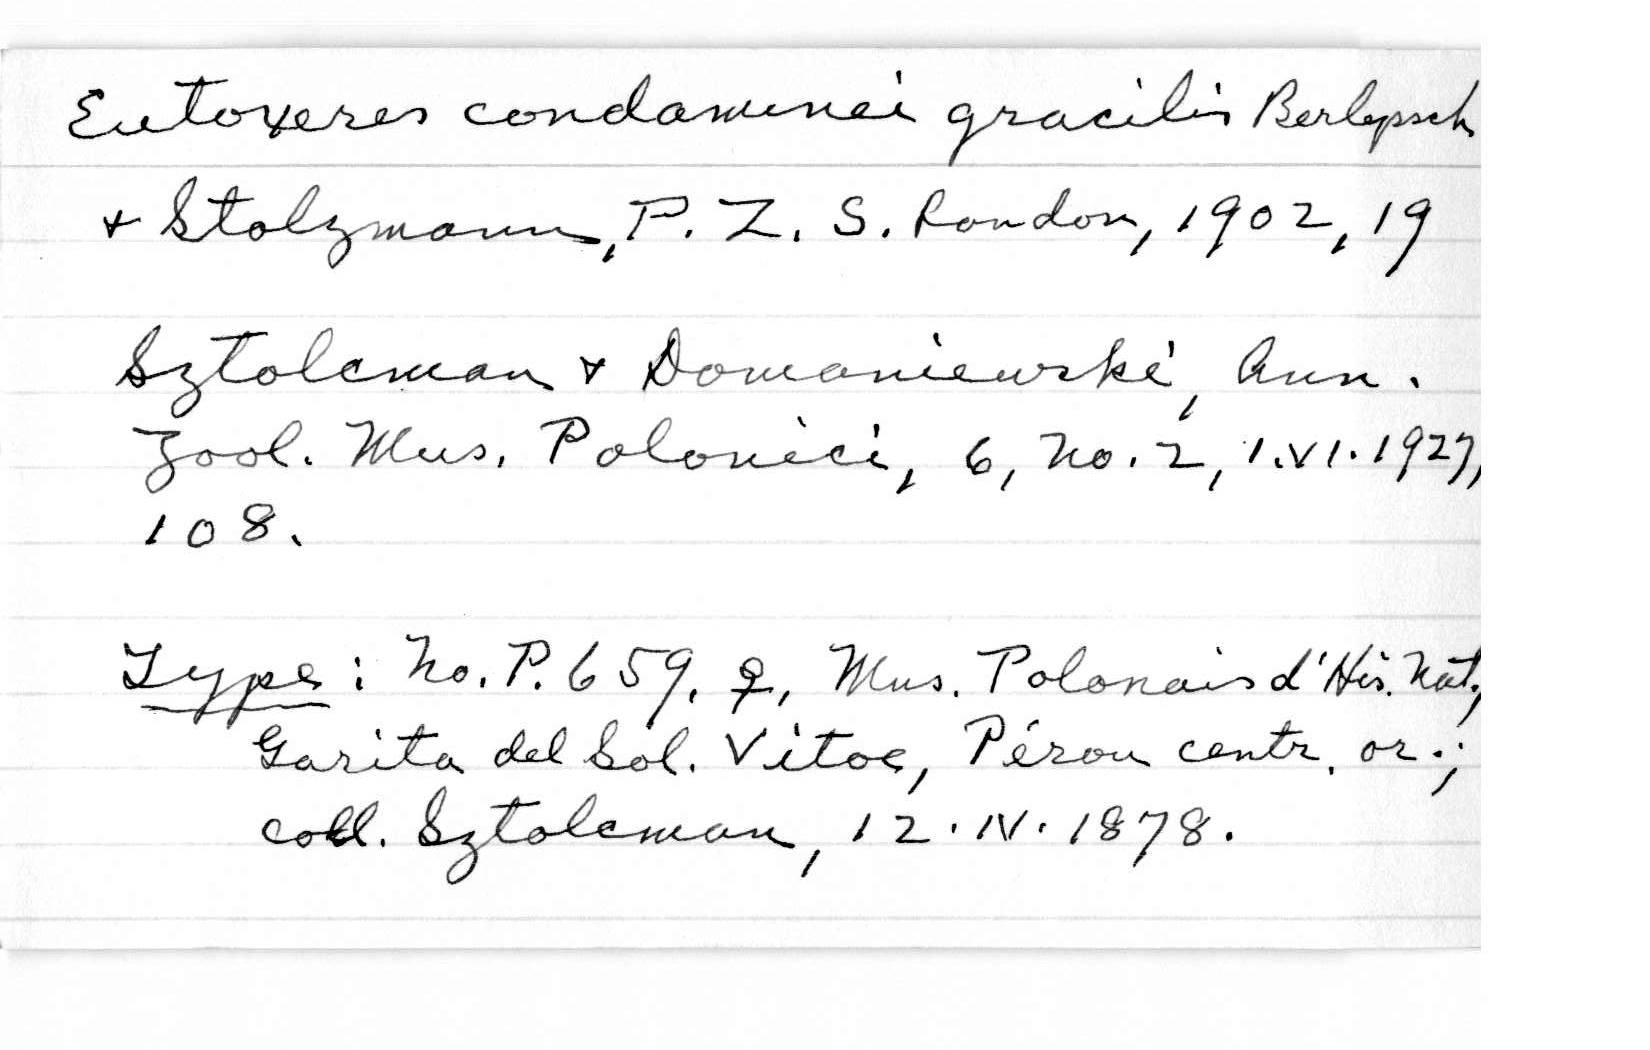 Eutoxeres condaminei gracilis Berlepsch
& Stolzmann, P. Z. S. London, 1902, 19
Sztolcman & Domaniewski, Ann.
Zool. Mus. Polonici, 6, no. 2, 1.VI.1927,
108.
Type: No. P. 659. ♀, Mus. Polonais d'His. Nat;
Garita del Sol. Vitoc, Pérou centr. or.;
coll. Sztolcman, 12.IV.1878.